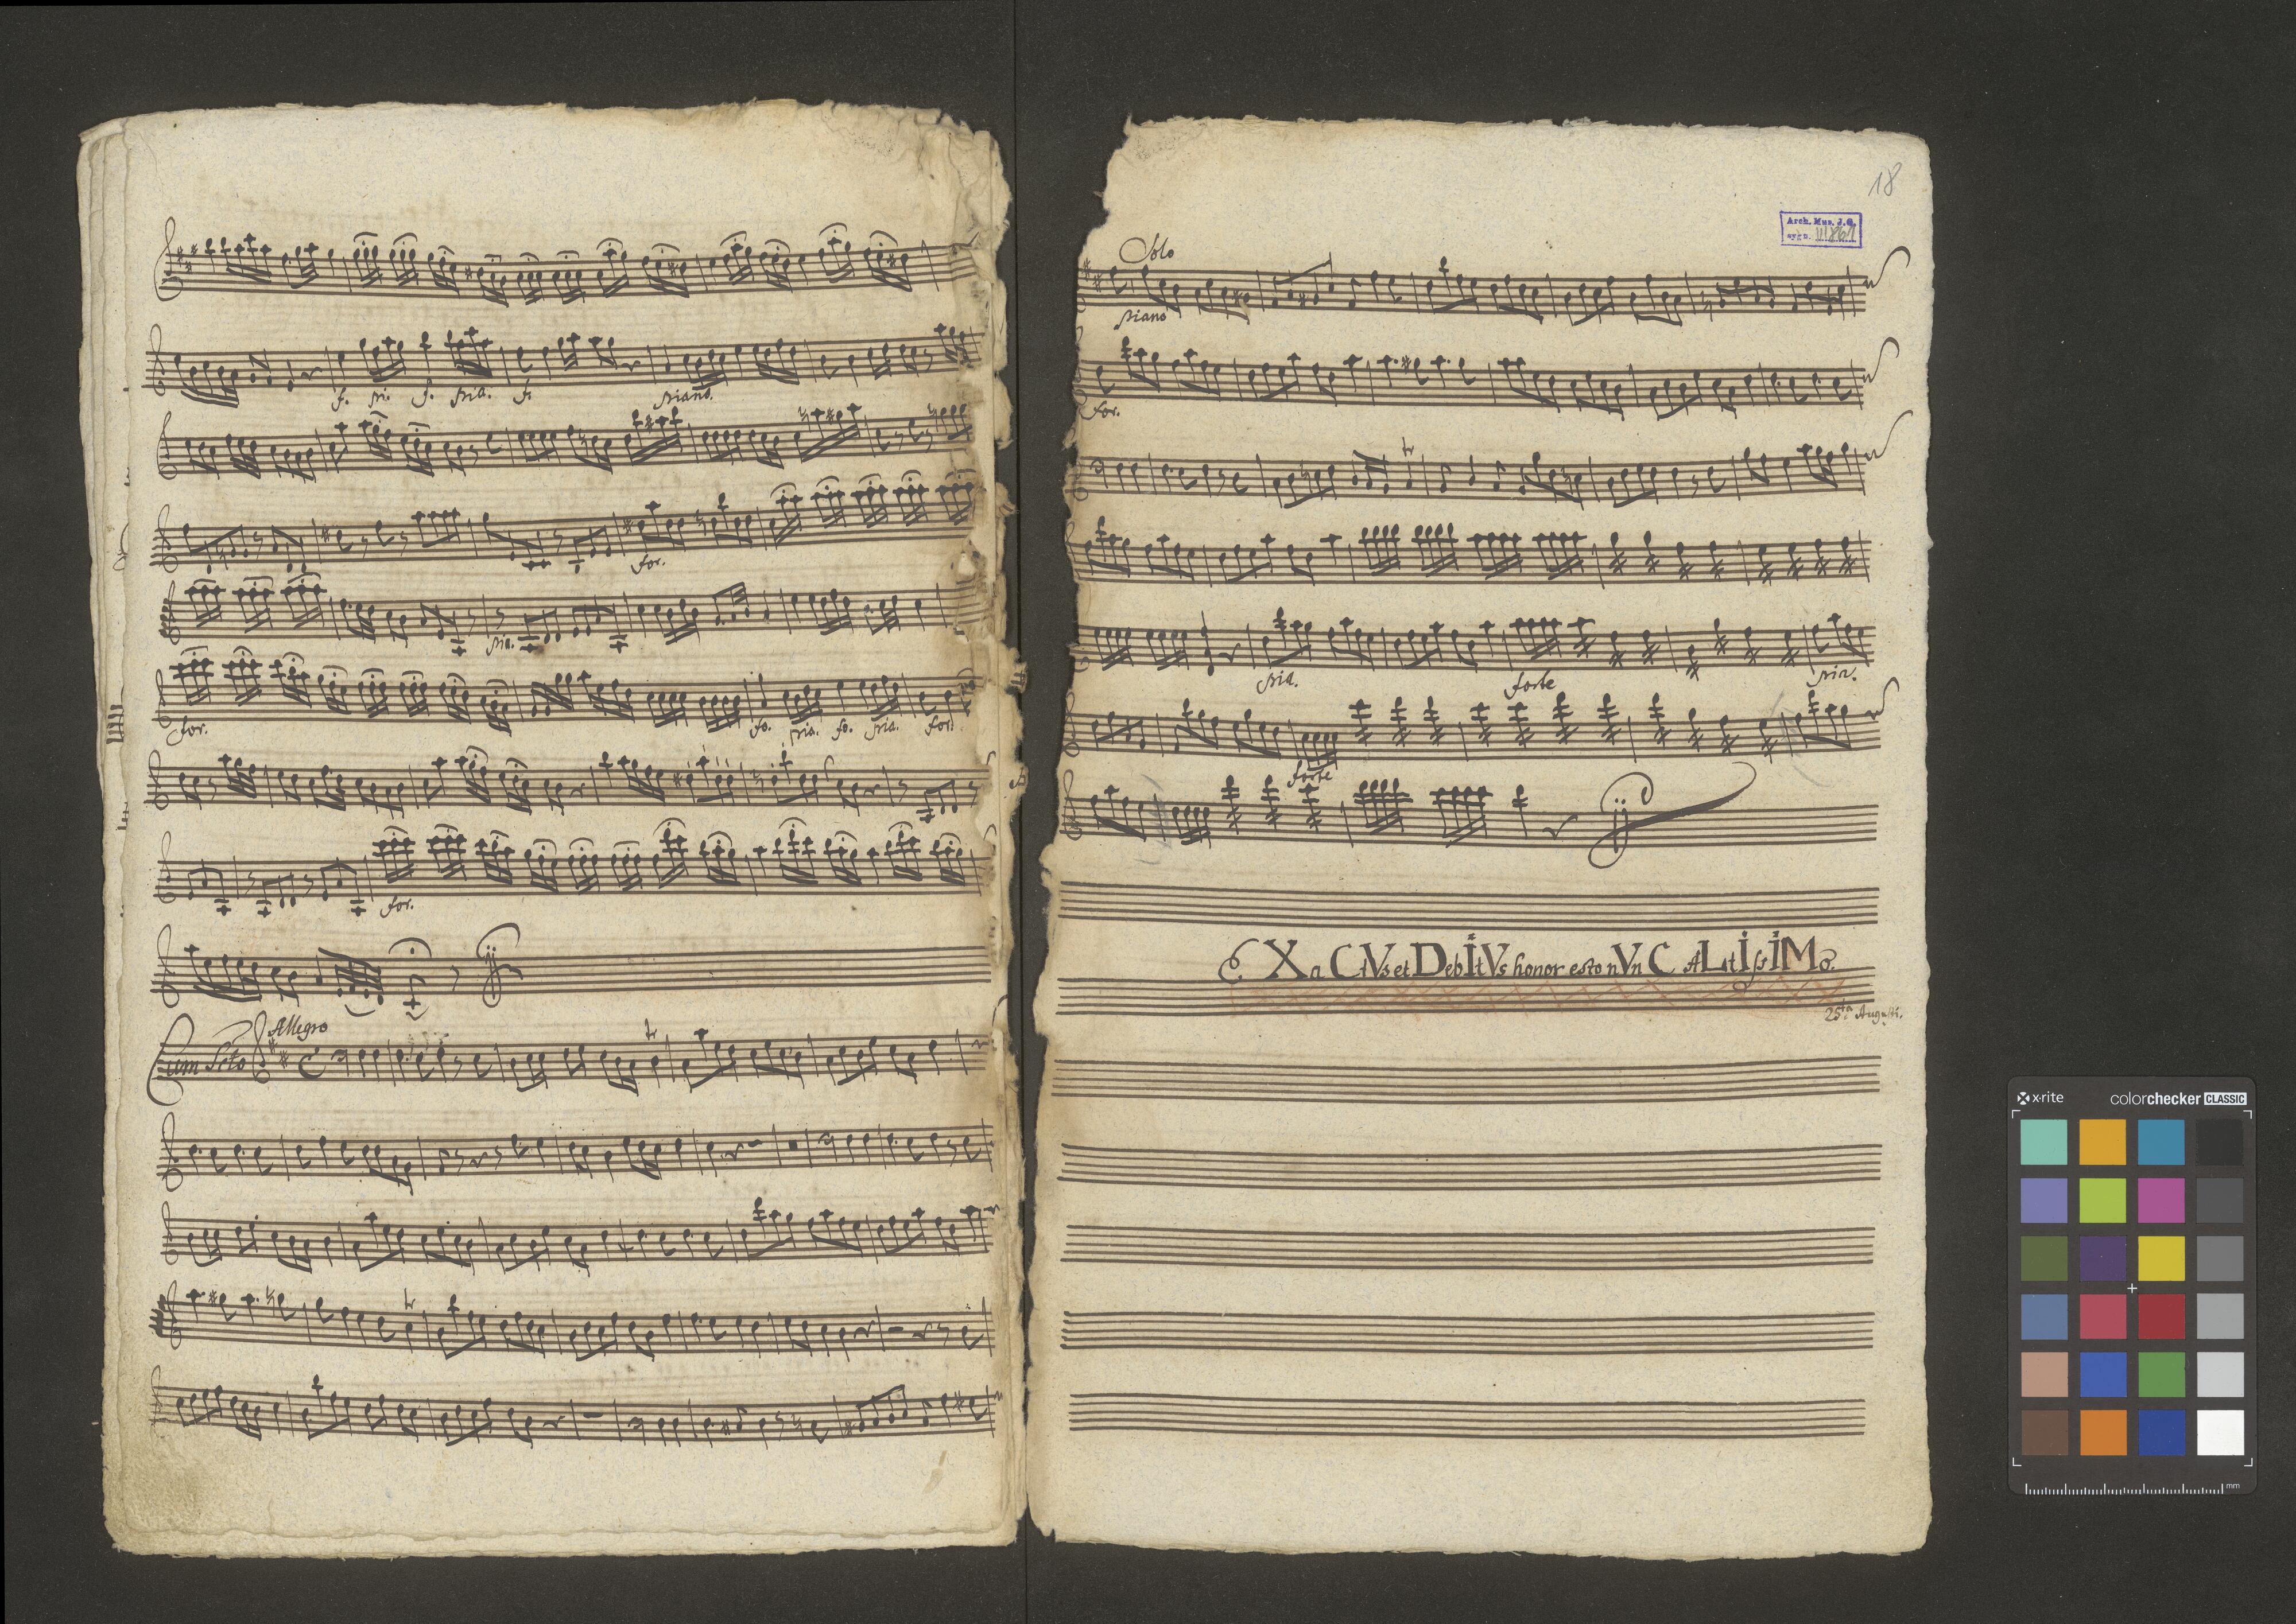 f. pi. f. pia. f. piano.
for.
pia.
for. fo. pia. fo. pia. for.
for.
Allegro
Cum Scto
18
Arch. Mus. J. G.
sygn. III 861
Solo
piano
for.
pia. forte pia.
forte
EXaCtVs et DebItVs honor esto nVnC ALtIssIMo.
25ta Augusti.
x-rite colorchecker CLASSIC
mm